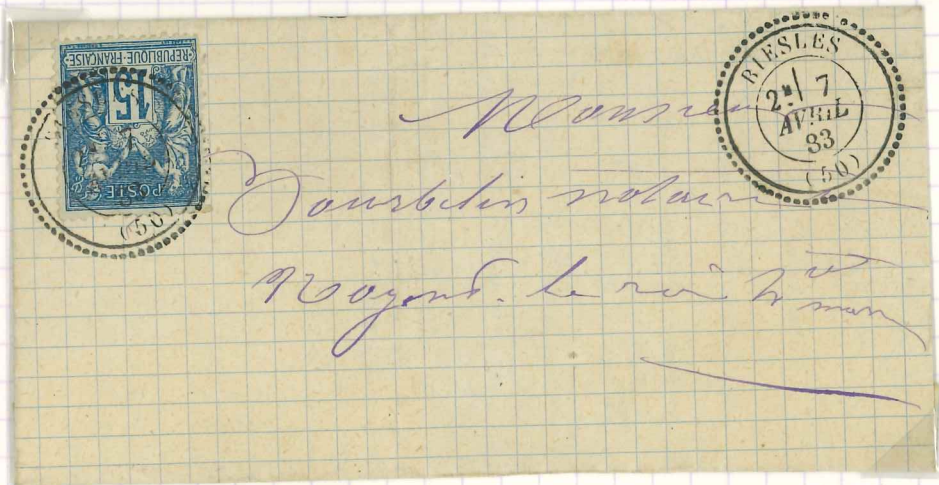 REPUBLIQUE-FRANÇAISE
15
POSTE
(50)
BIESLES
2E 7
AVRIL
83
(50)
Monsieur
notaire
Nogent. le roi Hte marn